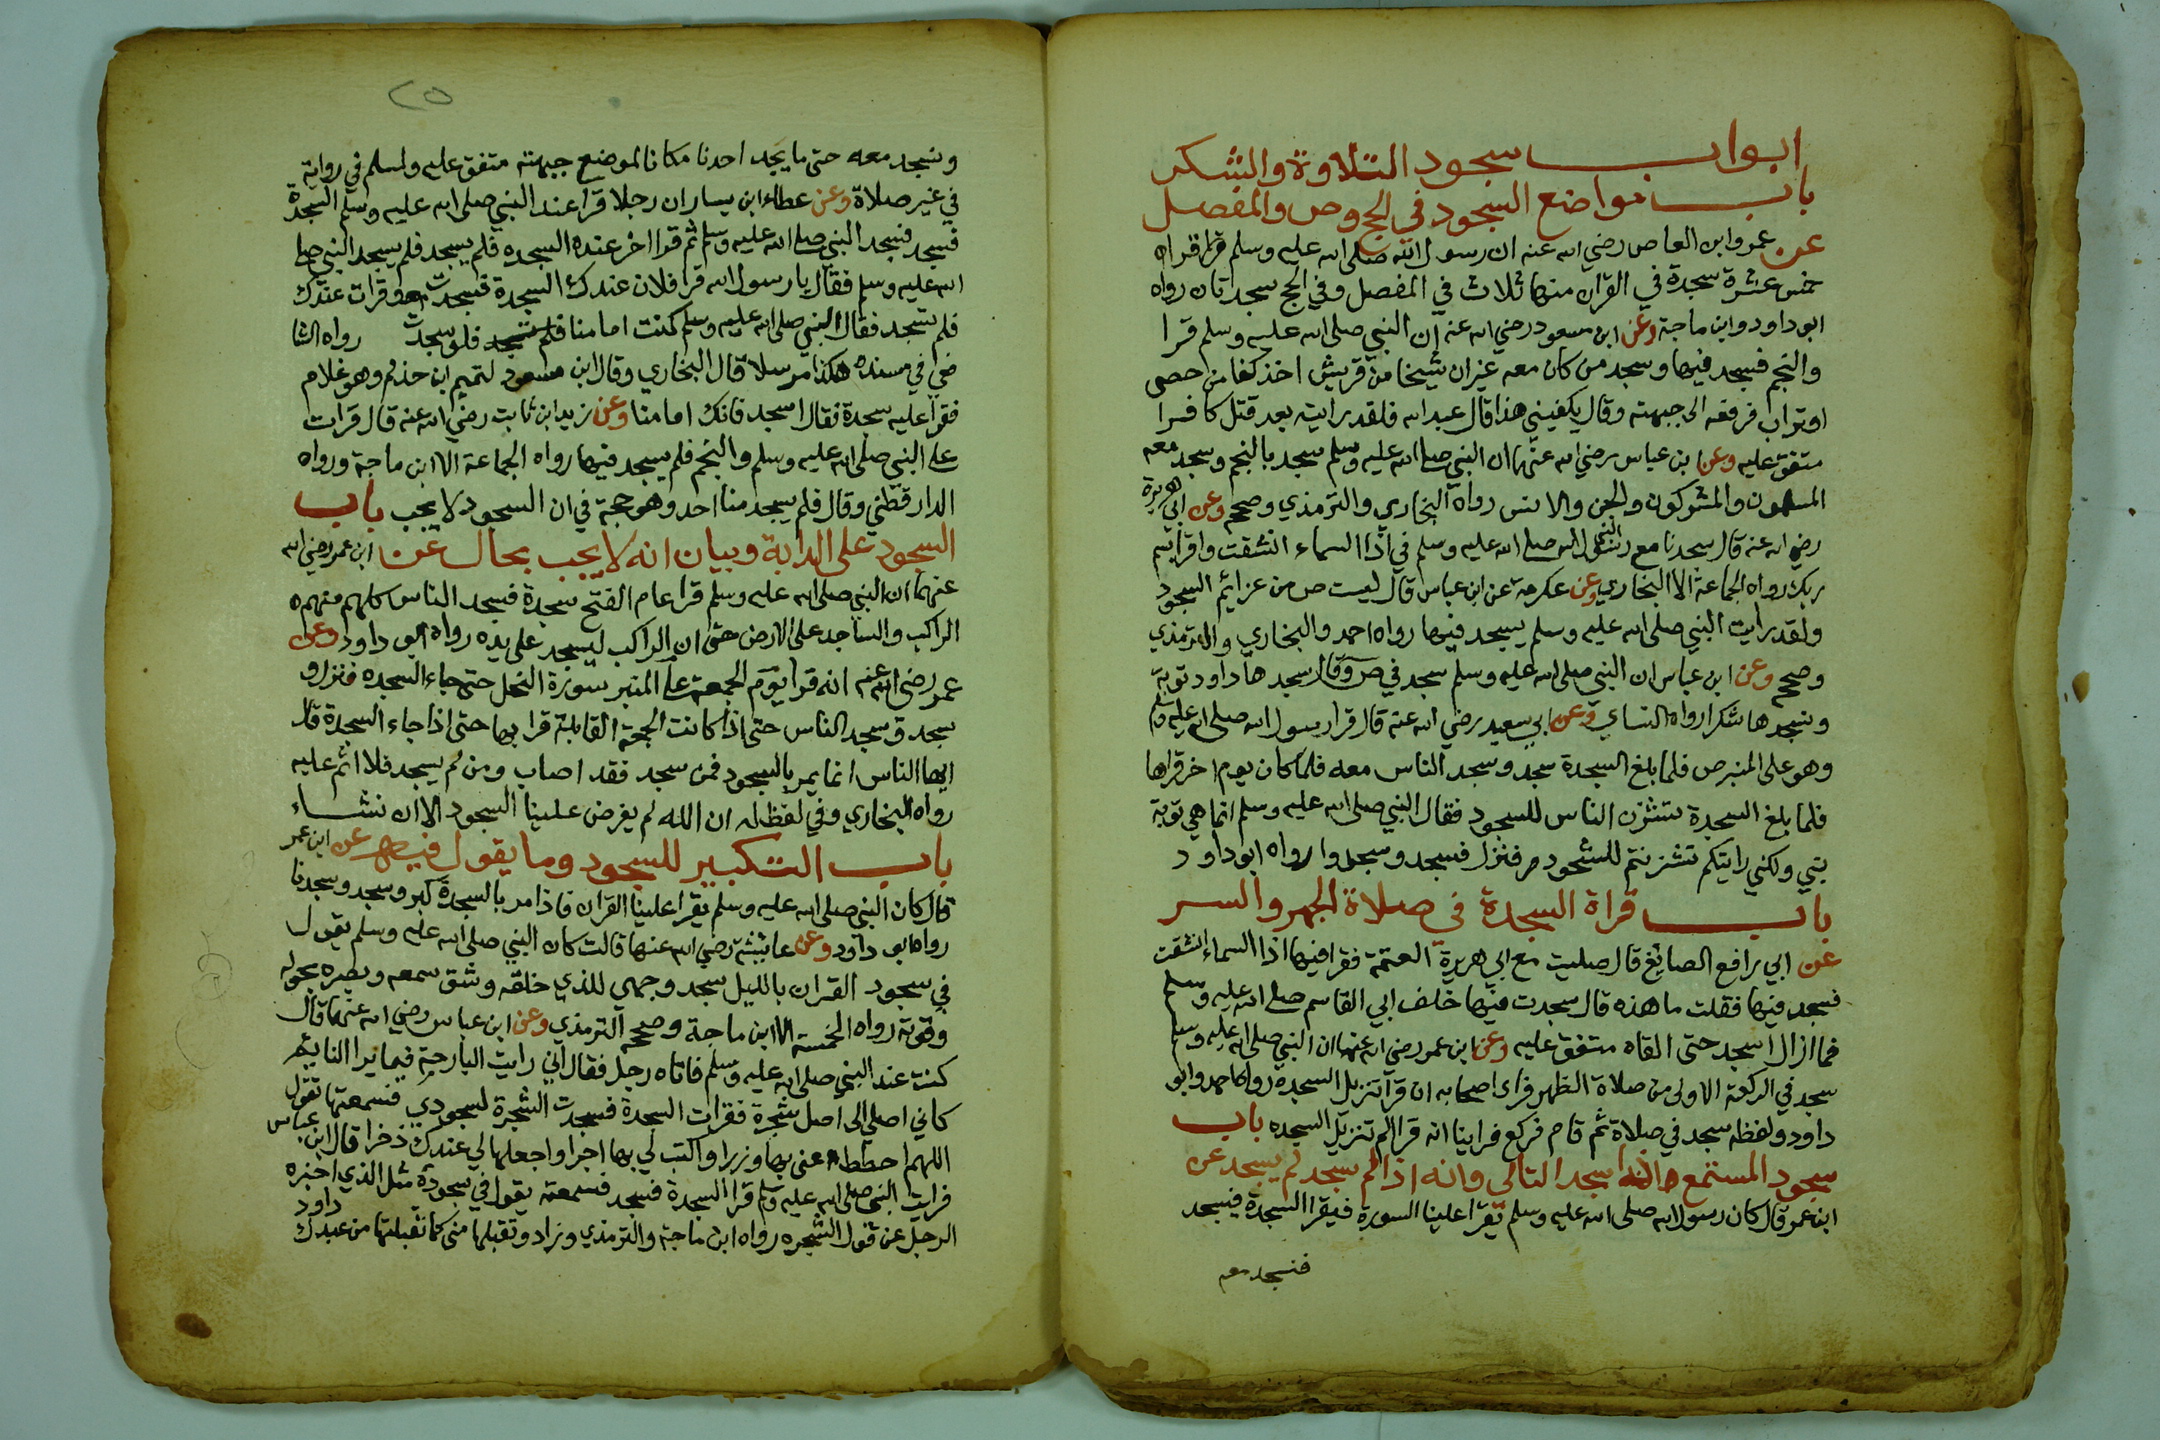 ابواب سجود التلاوة والشكر
باب مواضع السجود في الحج وص والمفصل
عن عمروابن العاص رضي الله عنه ان رسول الله صلى الله عليه وسلم قراه
خمس عشرة سجدة في القران منها ثلاث في المفصل وفي الحج سجدتان رواه
ابو داود وابن ماجة وعن ابن مسعود رضي الله عنه ان النبي صلى الله عليه وسلم قرا
والنجم فسجد فيها وسجد من كان معه غير ان شيخا من قريش اخذ كفا من حصى
او تراب فرفعه الى جبهته وقال يكفيني هذا قال عبد الله فلقد رايته بعد قتل كافرا
متفق عليه وعن ابن عباس رضي الله عنهما ان النبي صلى الله عليه وسلم سجد بالنجم وسجد معه
المسلمون والمشركون والجن والانس رواه البخاري والترمذي وصححه وعن ابي هريرة
رضي الله عنه قال سجدنا مع النبي صلى الله عليه وسلم في اذا السماء انشقت واقرا باسم
ربك رواه الجماعة الا البخاري وعن عكرمة عن ابن عباس قال ليست ص من عزائم السجود
ولقد رايت النبي صلى الله عليه وسلم يسجد فيها رواه احمد والبخاري والترمذي
وصححه وعن ابن عباس ان النبي صلى الله عليه وسلم سجد في ص وقال سجدها داود توبة
ونسجدها شكرا رواه النساي وعن ابي سعيد رضي الله عنه قال قرا رسول الله صلى الله عليه وسلم
وهو على المنبر ص فلما بلغ السجدة سجد وسجد الناس معه فلما كان يوم اخر قراها
فلما بلغ السجدة تشزن الناس للسجود فقال النبي صلى الله عليه وسلم انما هي توبة
نبي ولكني رايتكم تشزنتم للسجود فنزل فسجد وسجدوا رواه ابو داود
باب قراة السجدة في صلاة الجهر والسر
عن ابي رافع الصايغ قال صليت مع ابي هريرة العتمة فقرا فيها اذا السماء انشقت
فسجد فيها فقلت ما هذه قال سجدت فيها خلف ابي القاسم صلى الله عليه وسلم
فما ازال اسجد حتى القاه متفق عليه وعن ابن عمر رضي الله عنهما ان النبي صلى الله عليه وسلم
سجد في الركعة الاولى من صلاة الظهر فراى اصحابه ان قرا تنزيل السجدة رواه احمد وابو
داود ولفظه سجد في صلاة ثم قام فركع فراينا انه قرا الم تنزيل السجده باب
سجود المستمع اذا سجد التالي وانه اذا لم يسجد لم يسجد عن
ابن عمر قال كان رسول الله صلى الله عليه وسلم يقرا علينا السورة فيقرا السجدة فيسجد
فنسجد معه
٢٥
ونسجد معه حتى ما يجد احدنا مكانا لموضع جبهته متفق عليه ولمسلم في رواية
في غير صلاة وعن عطاء ابن يسار ان رجلا قرا عند النبي صلى الله عليه وسلم السجدة
فسجد فسجد النبي صلى الله عليه وسلم ثم قرا اخر عنده السجده فلم يسجد فلم يسجد النبي صلى
الله عليه وسلم فقال يا رسول الله قرا فلان عندك السجدة فسجدت وقرات عندك
فلم تسجد فقال النبي صلى الله عليه وسلم كنت امامنا فلو سجدت رواه الشا
فعي في مسنده هكذا مرسلا قال البخاري وقال ابن مسعود لتميم ابن حذلم وهو غلام
فقرا عليه سجدة فقال اسجد فانك امامنا وعن زيد ابن ثابت رضي الله عنه قال قرات
على النبي صلى الله عليه وسلم والنجم فلم يسجد فيها رواه الجماعة الا ابن ماجة ورواه
الدارقطني وقال فلم يسجد منا احد وهو حجة في ان السجود لا يجب باب
السجود على الدابة وبيان انه لا يجب بحال عن ابن عمر رضي الله
عنهما ان النبي صلى الله عليه وسلم قرا عام الفتح سجدة فسجد الناس كلهم منهم
الراكب والساجد على الارض حتى ان الراكب ليسجد على يده رواه ابو داود وعن
عمر رضي الله عنه انه قرا يوم الجمعة على المنبر سورة النحل حتى جاء السجده فنزل و
سجد وسجد الناس حتى اذا كانت الجمعة القابلة قرا بها حتى اذا جاء السجدة قال
ايها الناس انما يمر بالسجود فمن سجد فقد اصاب ومن لم يسجد فلا اثم عليه
رواه البخاري وفي لفظ له ان الله لم يفرض علينا السجود الا ان نشاء
باب التكبير للسجود وما يقول فيه عن ابن عمر
قال كان النبي صلى الله عليه وسلم يقرا علينا القران فاذا مر بالسجدة كبر وسجد وسجدنا
رواه ابو داود وعن عايشة رضي الله عنها قالت كان النبي صلى الله عليه وسلم يقول
في سجود القران بالليل سجد وجهي للذي خلقه وشق سمعه وبصره بحوله
وقوته رواه الخمسة الا ابن ماجة وصححه الترمذي وعن ابن عباس رضي الله عنهما قال
كنت عند النبي صلى الله عليه وسلم فاتاه رجل فقال اني رايت البارحة فيما يرا النائم
كاني اصلي الى اصل شجرة فقرات السجدة فسجدت الشجرة لسجودي فسمعتها تقول
اللهم احطط عني بها وزرا واكتب لي بها اجرا واجعلها لي عندك ذخرا قال ابن عباس
فرايت النبي صلى الله عليه وسلم قرا السجدة فسجد فسمعته يقول في سجوده مثل الذي اخبره
الرجل عن قول الشجره رواه ابن ماجة والترمذي وزاد وتقبلها مني كما تقبلتها من عبدك داود